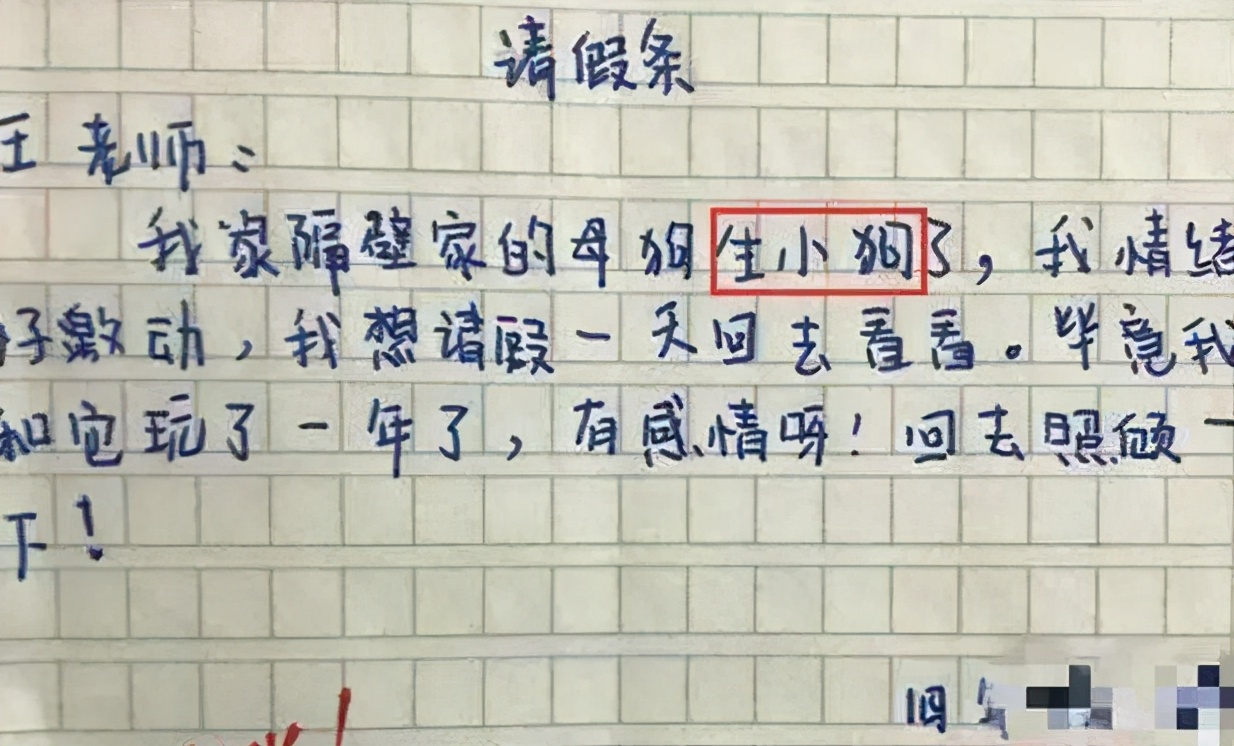 请假条
王老师：
我家隔壁家的母狗生小狗了，我情绪
好激动，我想请假一天回去看看。毕竟我
和它玩了一年了，有感情呀！回去照顾一
下！